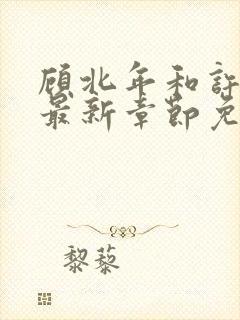 顾北年和许
最新章节免
黎藜